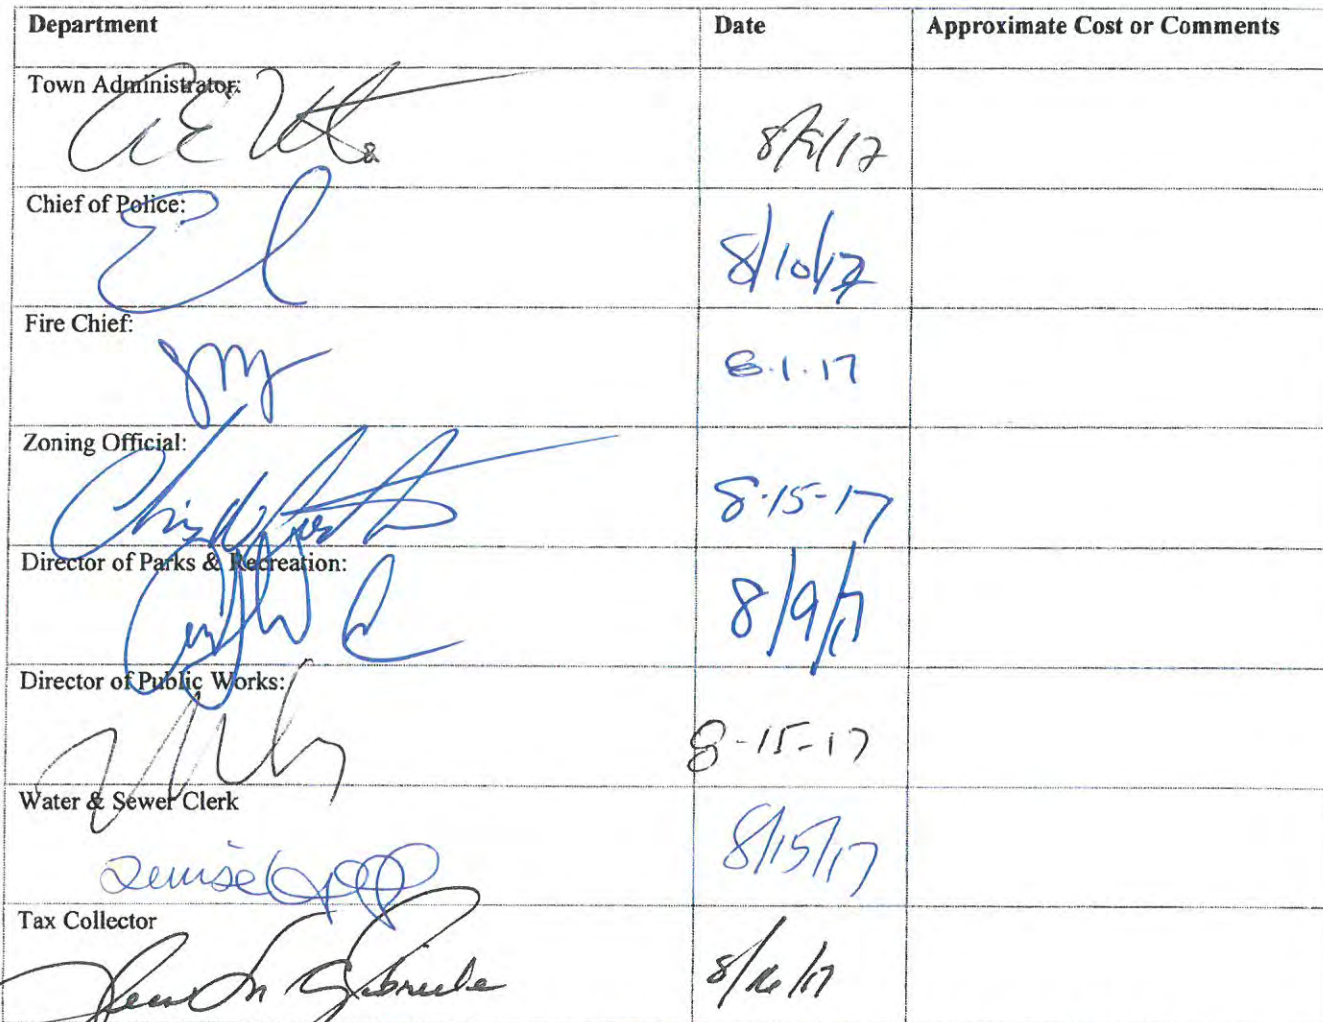 Department Date Approximate Cost or Comments
Town Administrator:
Chief of Police:
8/10/17
Fire Chief:
8.1.17
Zoning Official:
8-15-17
Director of Parks & Recreation:
8/9/17
Director of Public Works:
8-15-17
Water & Sewer Clerk
Denise 8/15/17
Tax Collector
8/16/17